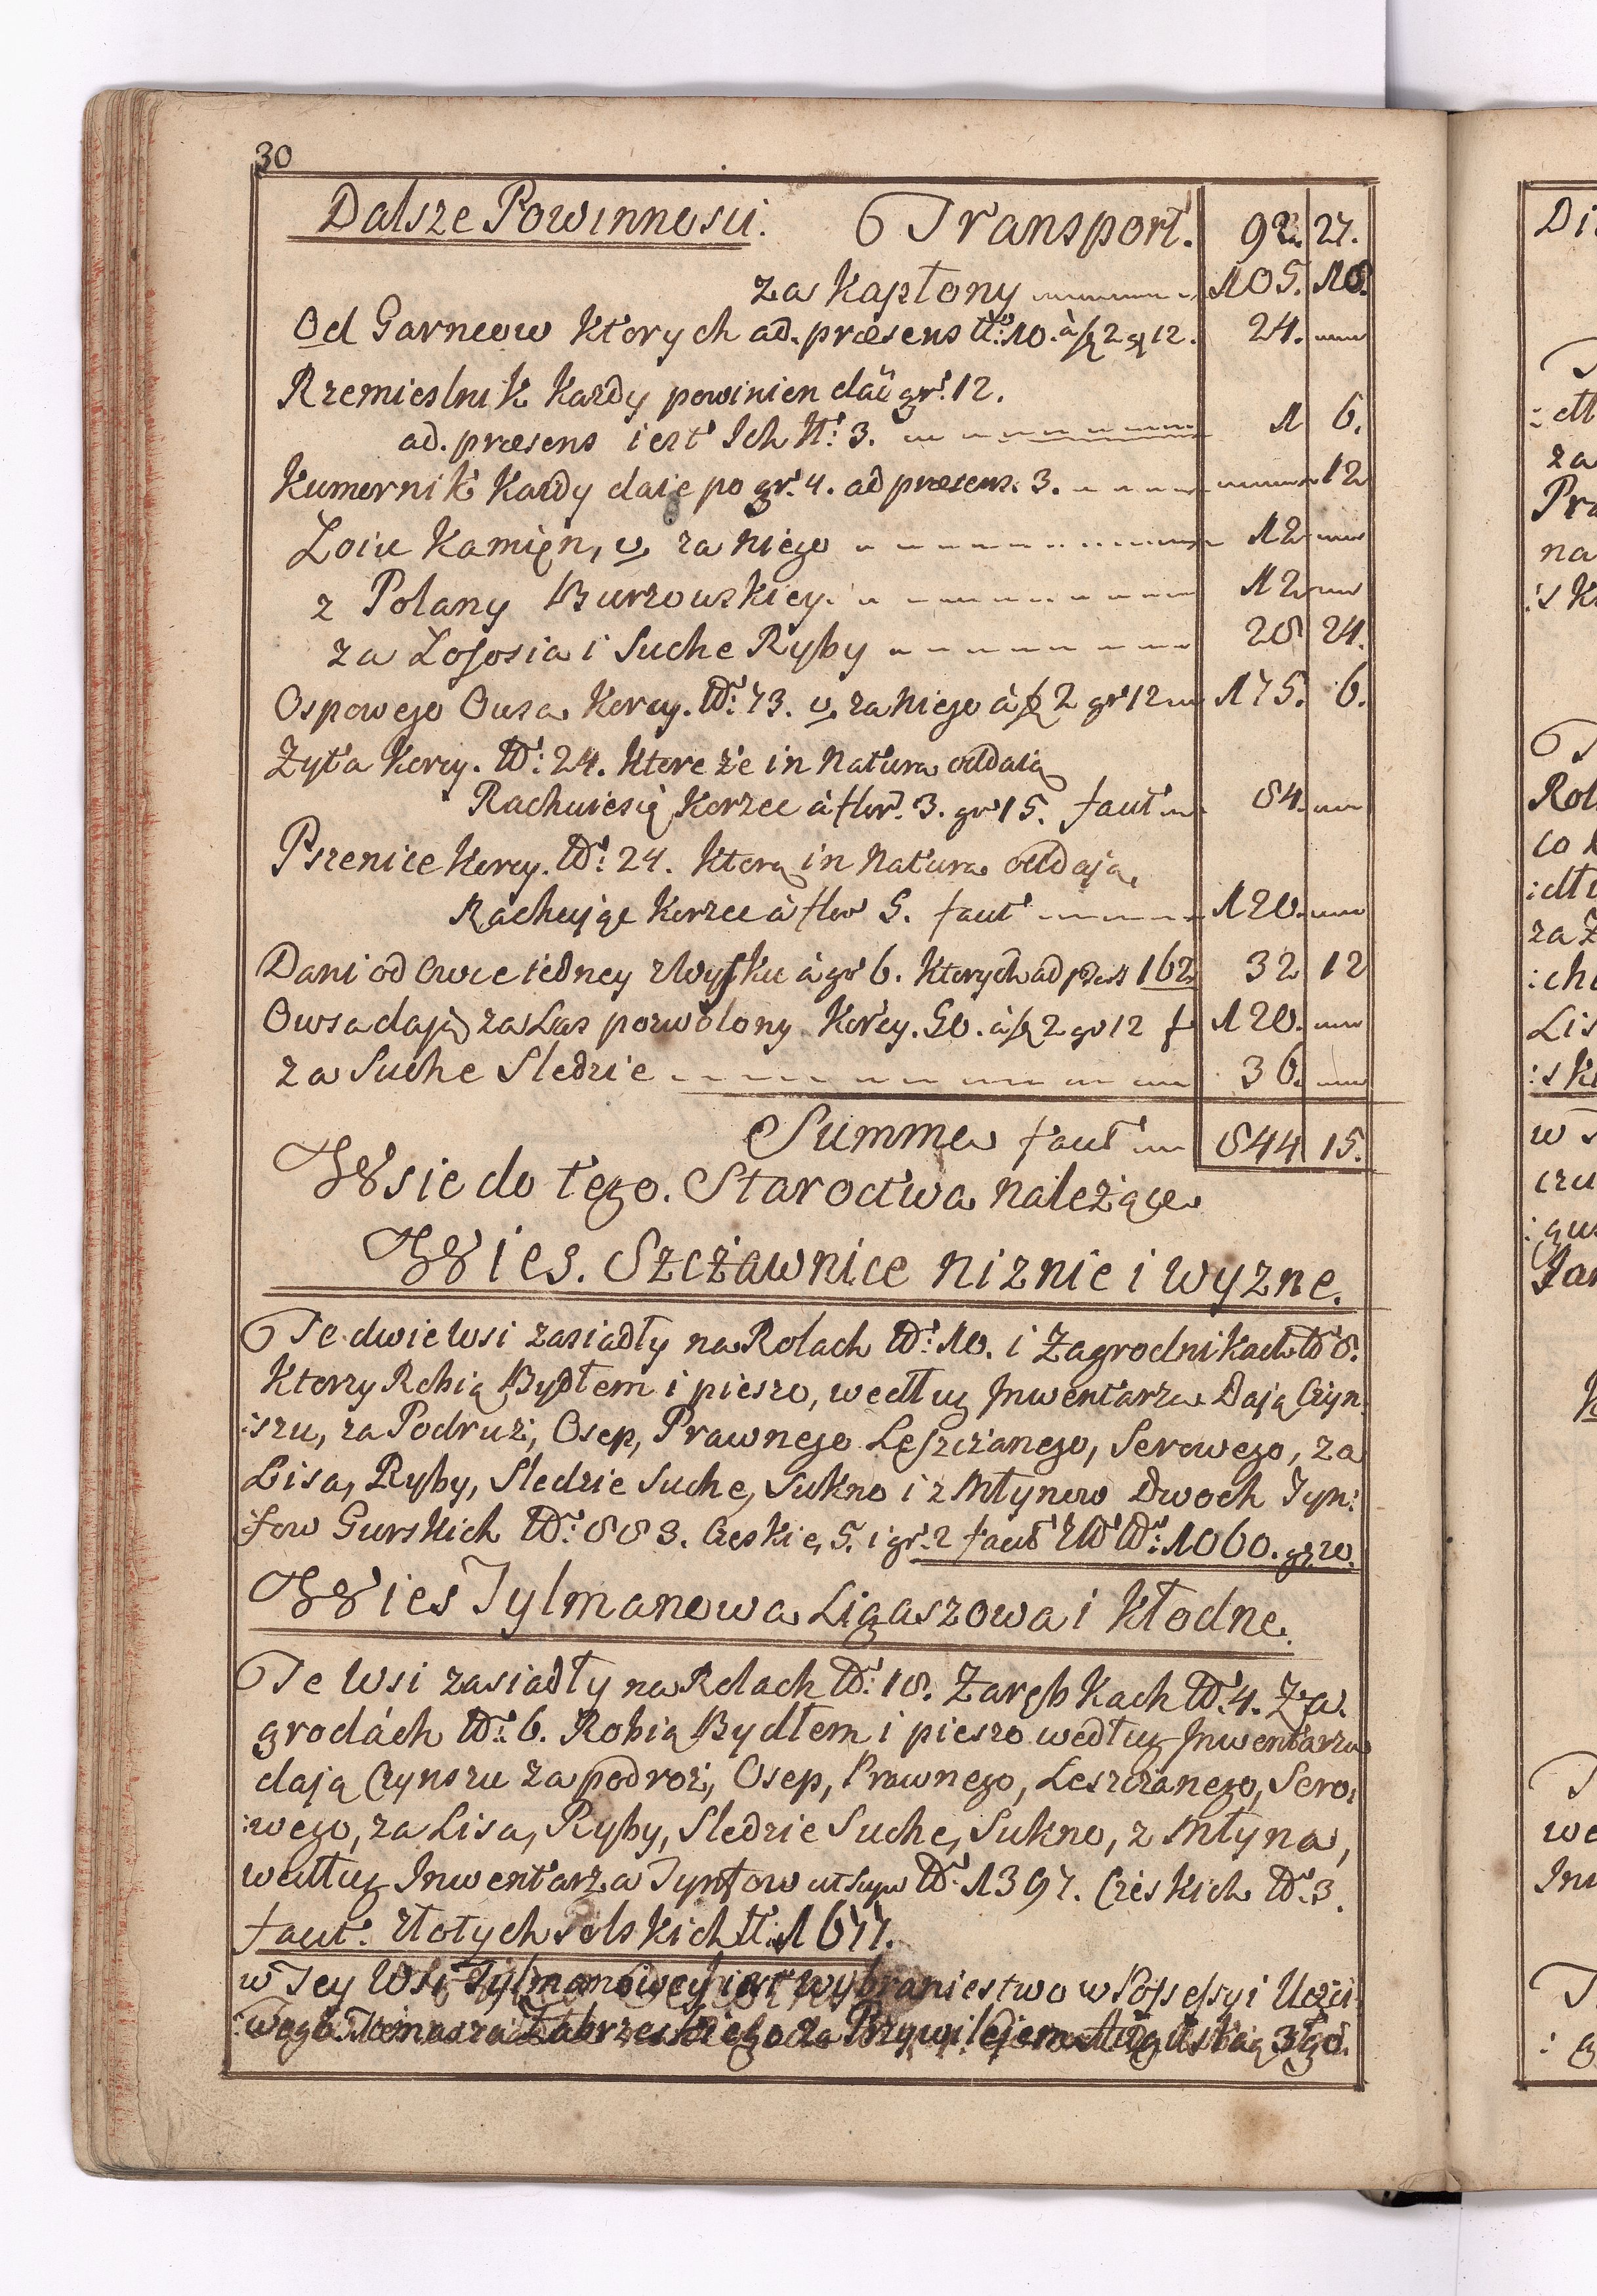 30
Dalsze Powinnosci. Transport. 92. 27.
za kapłony 105. 18.
Od Garncow ktorych ad. præsens Nr: 10. à fl 2 gr 12. 24.
Rzemieslnik każdy powinien dać gr: 12.
ad. præsens iest Ich Nr: 3. 1 6.
Kumornik każdy daie po gr: 4. ad præsens. 3. 12
Łoiu kamięn, v. za niego 12
z Polany Burzowskiey. 12
za Łososia i Suche Ryby 28 24.
Ospowego Owsa korcy. Nr: 73. v. za niego à fl 2 gr 12 175. 6.
Żyta korcy. Nr: 24. ktore że in Natura oddaią
Rachuie się korzec à flor. 3. gr 15. facit 84.
Pszenice korcy. Nr: 24. ktorą in Natura oddają,
Rachując korzec à flor 5. facit 120.
Dani od Owiec iedney z Wysku à gr 6. ktorych ad præs 162 32 12
Owsa dają za Las pozwolony korcy. 50. à fl 2 gr 12 f 120.
za Suche Sledzie 36.
Summa facit 844 15.
Wsie do tego. Staroctwa należące
Wies. Szczawnice niznie i wyzne.
Te dwie Wsi zasiadły na Rolach Nr: 10. i Zagrodnikach Nr 8.
Ktorzy Robią Bydłem i pieszo, według Inwentarza Dają Czyn:
:szu, za Podruż, Osep, Prawnego Leszczanego, Serowego, za
Lisa, Ryby, Sledzie Suche, Sukno i z Młynow Dwoch Tyn:
:fow Gurskich Nr: 883. Czeskie, 5. i gr: 2 facit Zł Nr: 1060. gr 20.
Wies Tylmanowa Ligaszowa i Kłodne.
Te Wsi zasiadły na Rolach Nr: 18. Zarębkach Nr: 4. Za:
grodách Nr: 6. Robią Bydłem i pieszo według Inwentarza
dają Czynszu za podroż, Osep, Prawnego, Leszczanego, Sero:
:wego, za Lisa, Ryby, Sledzie Suche, Sukno, z Młyna,
według Inwentarza Tynfow ut Supr Nr: 1397. Czeskich Nr: 3.
facit: złotych Polskich Nr: 1677.
w Tey Wsi Tylmanowey iest wybraniestwo w Possessyi Uczci:
:wego Tomasza Zabrzeskiego za Przywilejem Augusta 3go.